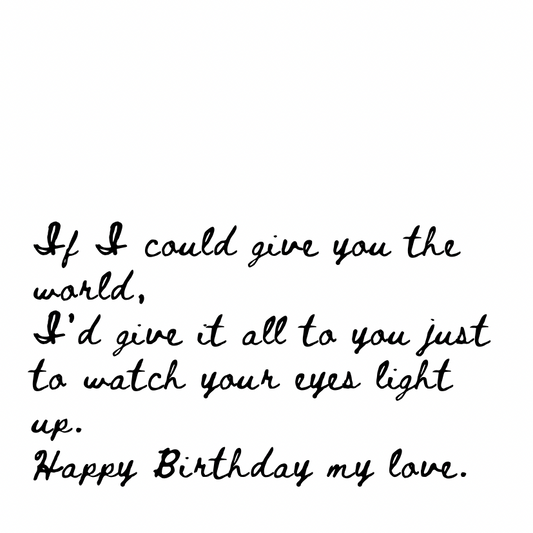 If I could give you the
world,
I'd give it all to you just
to watch your eyes light
up.
Happy Birthday my love.